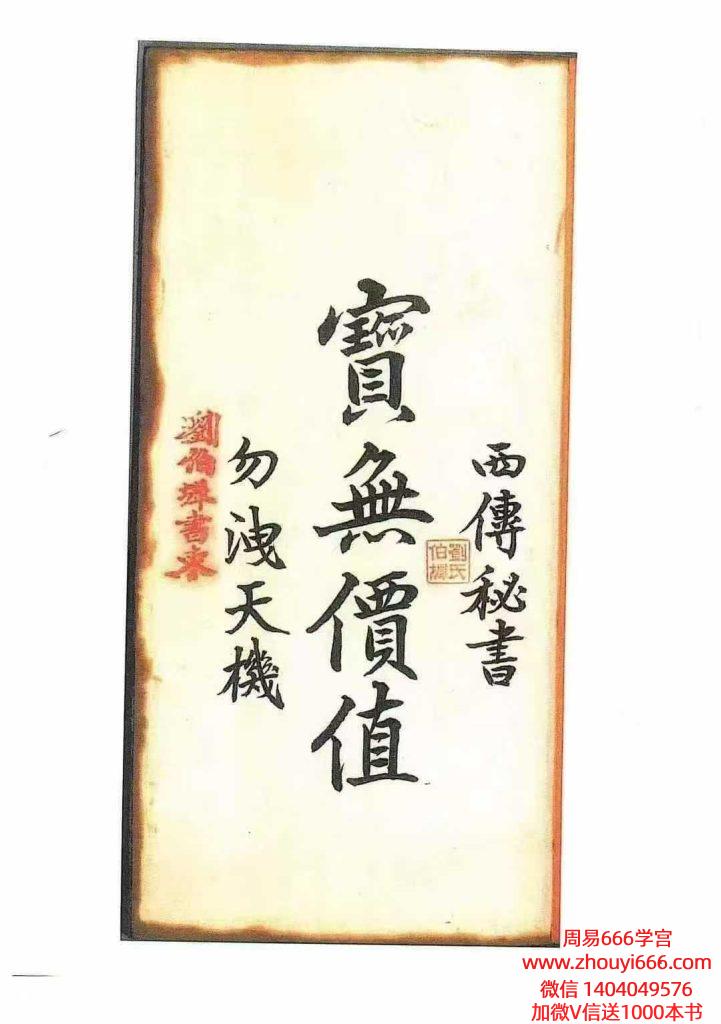 西傳秘書
劉氏伯撝
寶無價值
勿洩天機
劉伯墀書柬
周易666学宫
www.zhouyi666.com
微信 1404049576
加微V信送1000本书